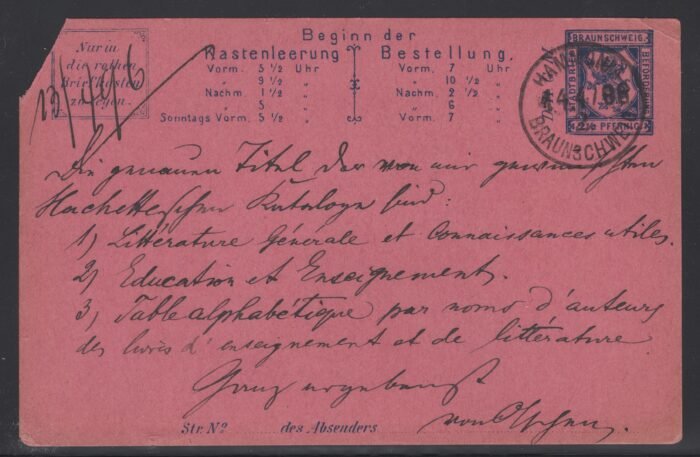 Nur in
die rothen
Briefkasten
zu legen.
13/4 96
Beginn der
Kastenleerung
Vorm. 5 1/2 Uhr
" 9 1/2 "
Nachm. 1 1/2 "
" 5 "
Sonntags Vorm. 5 1/2 "
Bestellung.
Vorm. 7 Uhr
" 10 1/2 "
Nachm. 2 1/2 "
" 6 "
Vorm. 7 "
BRAUNSCHWEIG.
STADTBRIEF
BEFÖRDERUNG
1 1/2 PFENNIG
BRAUNSCHWEIG
Die genauen Titel der von mir gewünschten
Hachetteschen Kataloge sind:
1) Littérature Générale et Connaissances utiles.
2) Education et Enseignement.
3) Table alphabétique par noms d'auteurs
des livres d'enseignement et de littérature
Ganz ergebenst
von
Str. No des Absenders